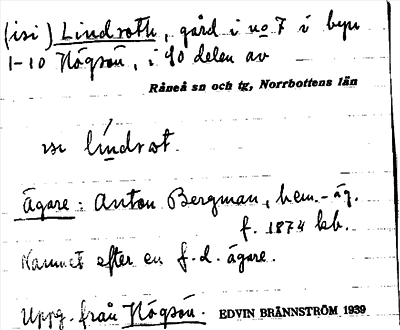 (isi) Lindroth, gård i no 7 i byn
1-10 Högsön, i 40 delen av
Råneå sn och tg, Norrbottens län
isi líndrot.
Ägare: Anton Bergman, hem.-äg.
f. 1874 kb.
Namnet efter en f.d. ägare.
Uppg. från Högsön. EDVIN BRÄNNSTRÖM 1939